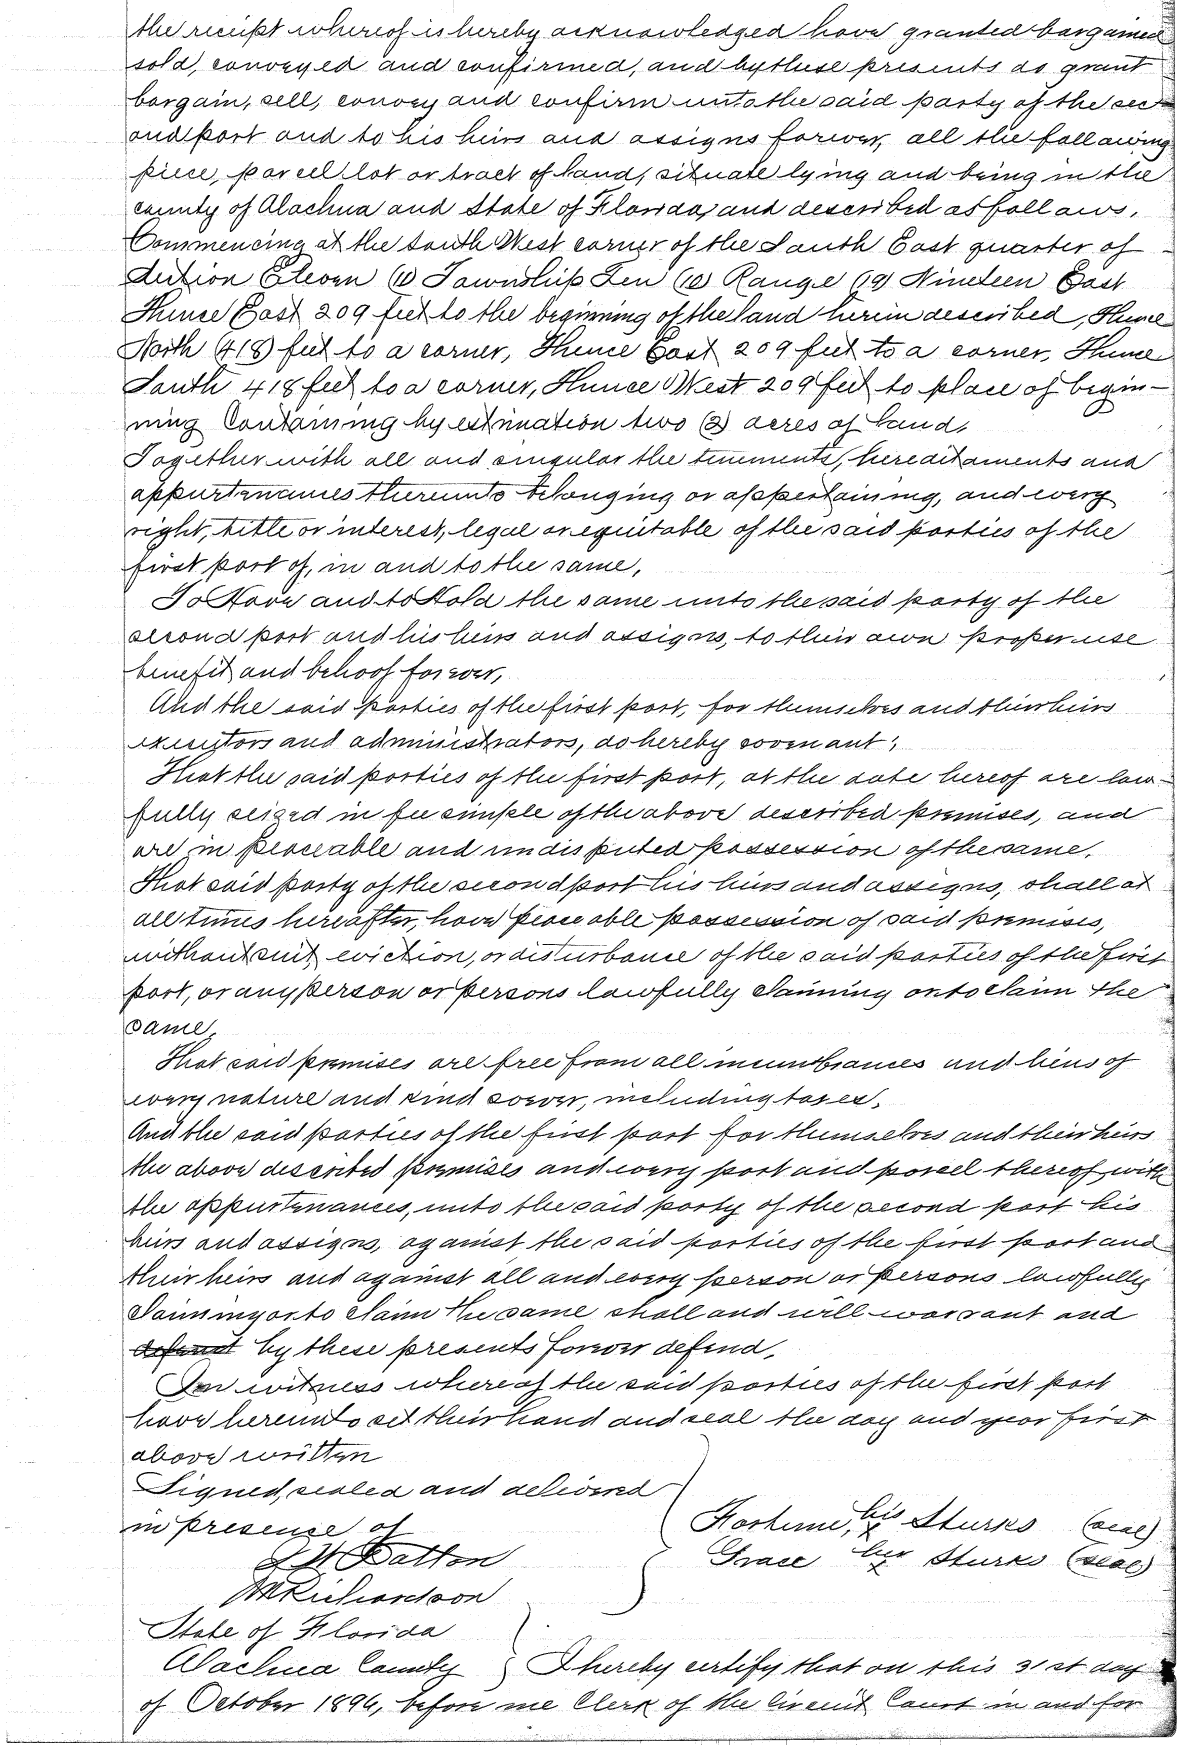 the receipt whereof is hereby acknowledged have granted bargained
sold, conveyed and confirmed, and by these presents do grant
bargain, sell, convey and confirm unto the said party of the sec-
ond part and to his heirs and assigns forever, all the following
piece, parcel lot or tract of land, situate lying and being in the
county of Alachua and State of Florida, and described as follows.
Commencing at the South West corner of the South East quarter of
Section Eleven (11) Township Ten (10) Range (19) Nineteen East
Thence East 209 feet to the beginning of the land herein described, Thence
North (418) feet to a corner, Thence East 209 feet to a corner, Thence
South 418 feet to a corner, Thence West 209 feet to place of begin-
ning Containing by estimation two (2) acres of land,
Together with all and singular the tenements, hereditaments and
appurtenances thereunto belonging or appertaining, and every
right, title or interest, legal or equitable of the said parties of the
first part of, in and to the same,
To Have and to Hold the same unto the said party of the
second part and his heirs and assigns, to their own proper use
benefit and behoof forever,
And the said parties of the first part, for themselves and their heirs
executors and administrators, do hereby covenant;
That the said parties of the first part, at the date hereof are law-
fully seized in fee simple of the above described premises, and
are in peaceable and undisputed possession of the same.
That said party of the second part his heirs and assigns, shall at
all times hereafter, have peaceable possession of said premises,
without suit, eviction, or disturbance of the said parties of the first
part, or any person or persons lawfully claiming or to claim the
same,
That said premises are free from all incumbrances and liens of
every nature and kind soever, including taxes,
And the said parties of the first part for themselves and their heirs
the above described premises and every part and parcel thereof with
the appurtenances, unto the said party of the second part his
heirs and assigns, against the said parties of the first part and
their heirs and against all and every person or persons lawfully
claiming or to claim the same shall and will warrant and
defend by these presents forever defend,
In witness whereof the said parties of the first part
have hereunto set their hand and seal the day and year first
above written
Signed, sealed and delivered
in presence of
Fortune, his x Sturks (seal)
Grace her x Sturks (seal)
Dalton
Richardson
State of Florida
Alachua County } I hereby certify that on this 31st day
of October 1894, before me Clerk of the Circuit Court in and for